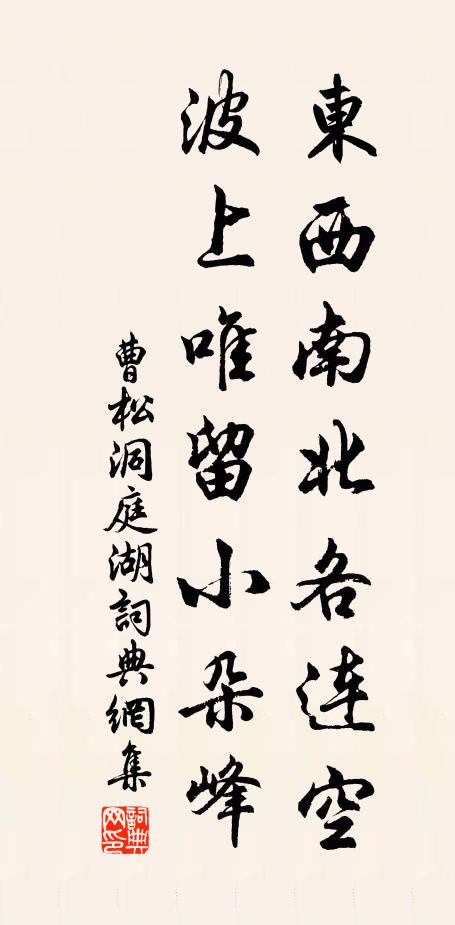 東西南北各連空
波上唯留小朵峰
曹松洞庭湖詞典網集
詞典網印